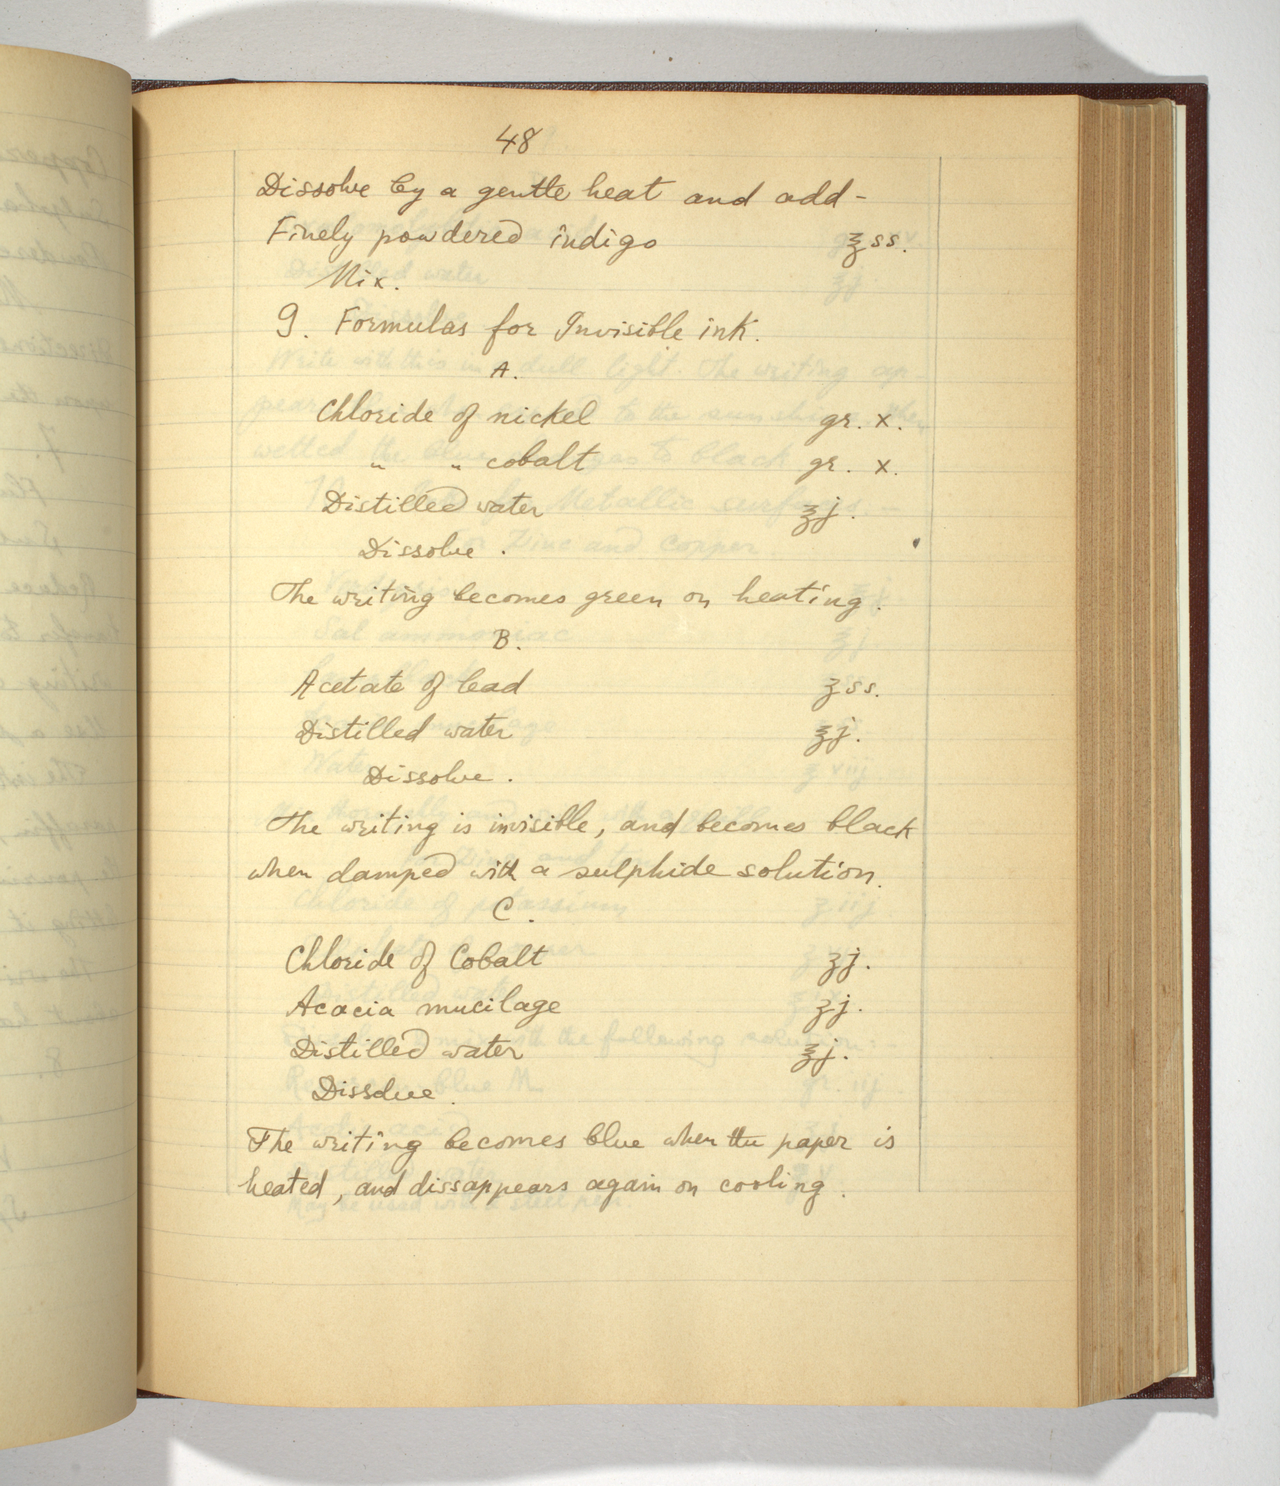 48
Dissolve by a gentle heat and add -
Finely powdered indigo ℥ss.
Mix.
9. Formulas for Invisible ink.
A.
Chloride of nickel gr. x.
" " cobalt gr. x.
Distilled water ℥j.
Dissolve.
The writing becomes green on heating.
B.
Acetate of lead ʒss.
Distilled water ℥j.
Dissolve.
The writing is invisible, and becomes black
when damped with a sulphide solution.
C.
Chloride of Cobalt ʒj.
Acacia mucilage ʒj.
Distilled water ℥j.
Dissolve.
The writing becomes blue when the paper is
heated, and dissappears again on cooling.